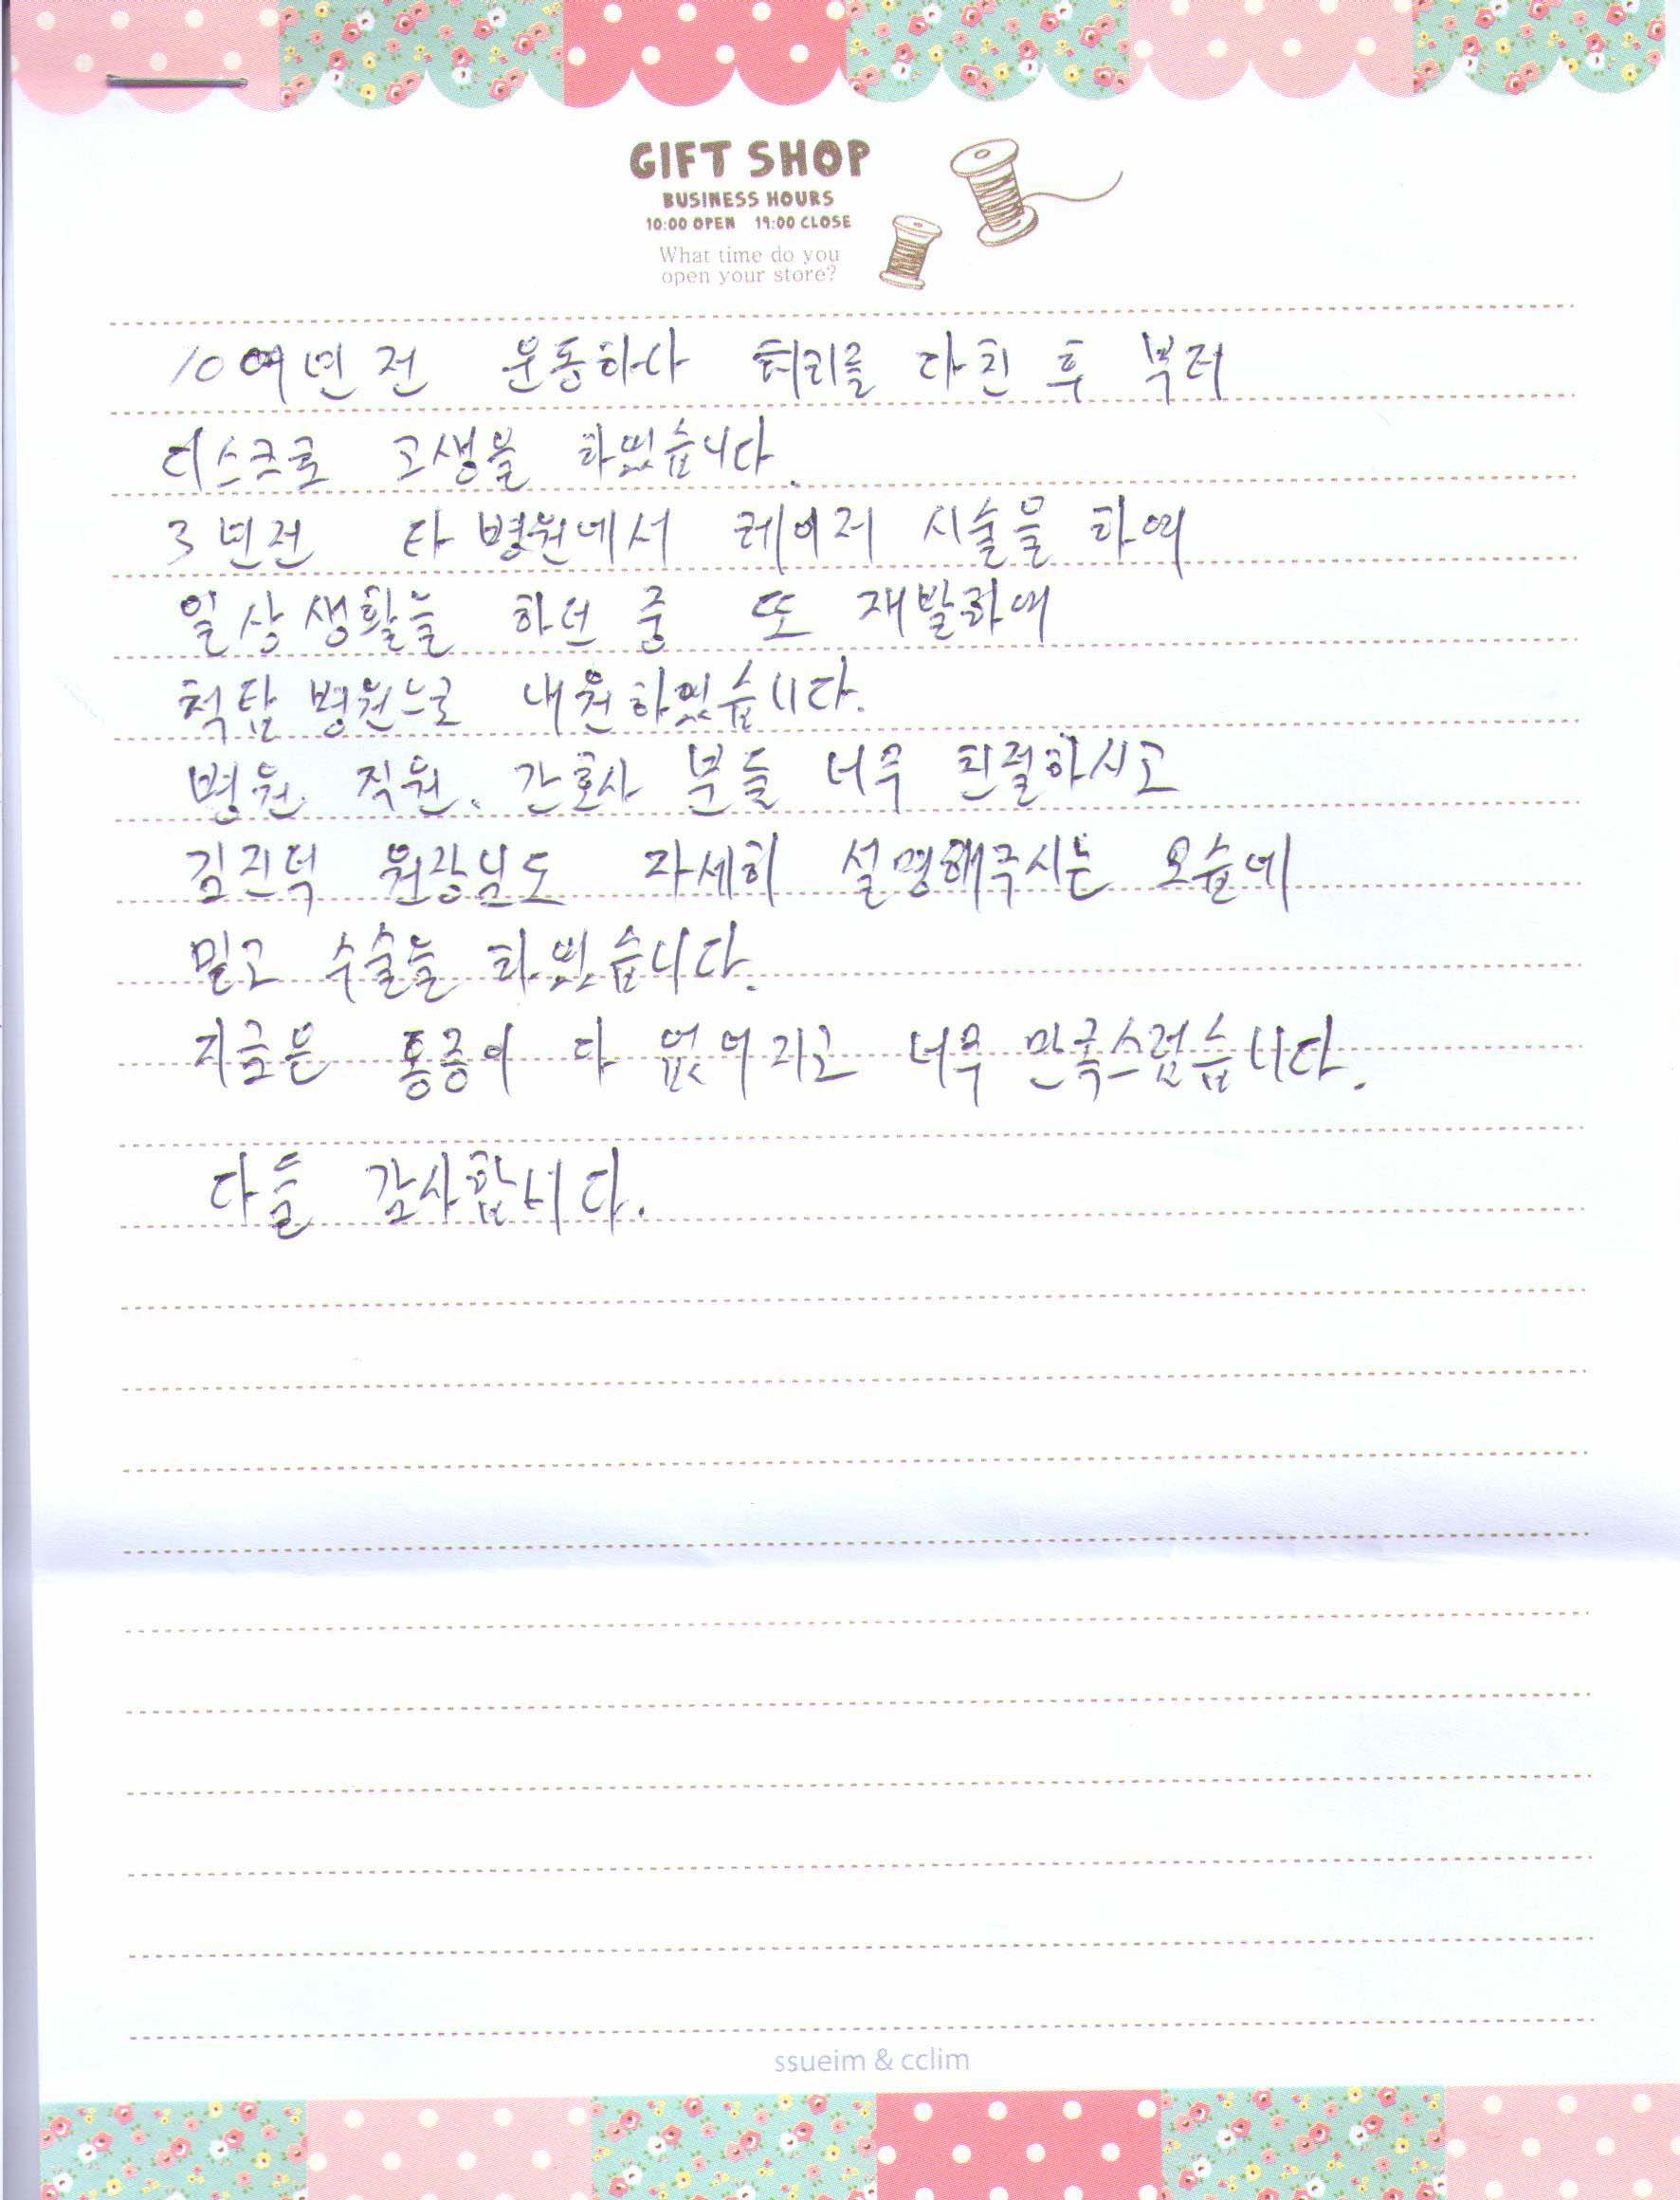 GIFT SHOP
BUSINESS HOURS
10:00 OPEN 19:00 CLOSE
What time do you
open your store?
10여년전 운동하다 허리를 다친 후 부터
디스크로 고생을 하였습니다.
3년전 타 병원에서 레이저 시술을 하여
일상생활을 하던 중 또 재발하여
척탑병원으로 내원하였습니다.
병원 직원, 간호사 분들 너무 친절하시고
김진덕 원장님도 자세히 설명해주시는 모습에
믿고 수술을 하였습니다.
지금은 통증이 다 없어지고 너무 만족스럽습니다.
다들 감사합니다.
ssueim & cclim